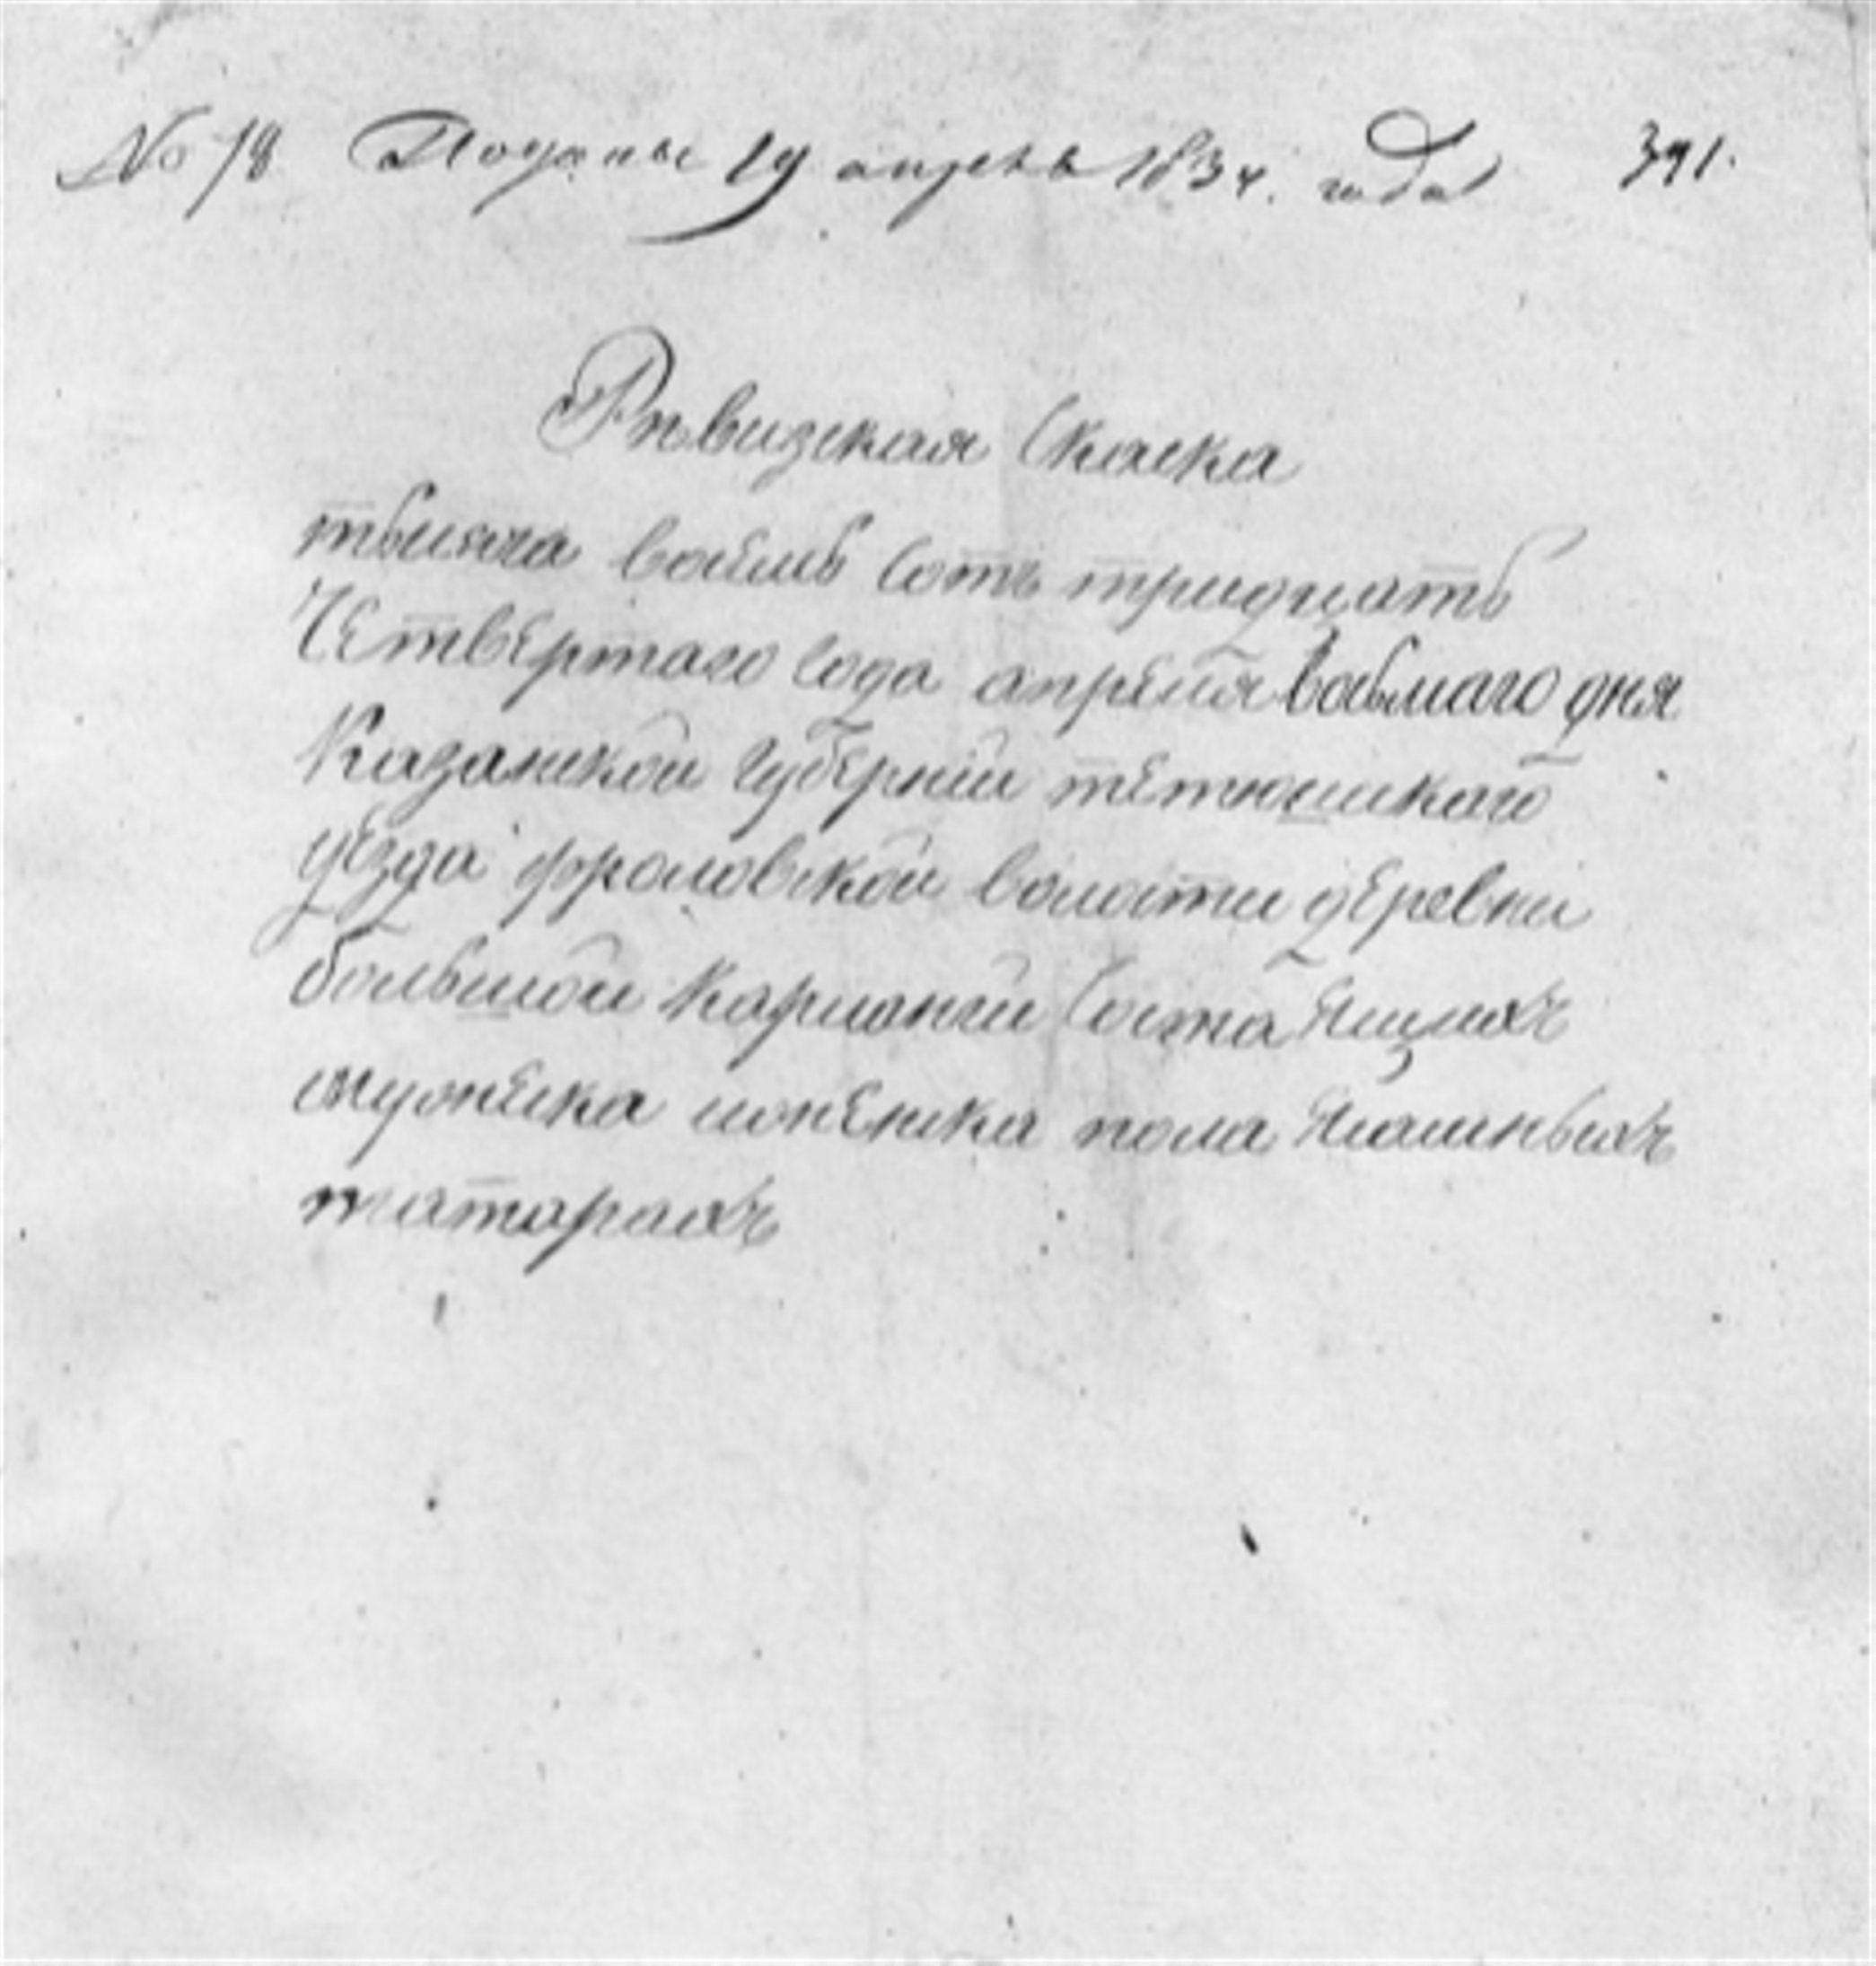 № 78 Поданы 19 апреля 1834. года 391.
Рѣвизская Скаска
тысяча восемь сотъ тридцать
Четвертаго года апреля восьмаго дня
Казанской губернии тетюшскаго
уезда фроловской волости деревни
большой Карланги Состаящихъ
мужеска ионенска пола ясашныхъ
татарахъ